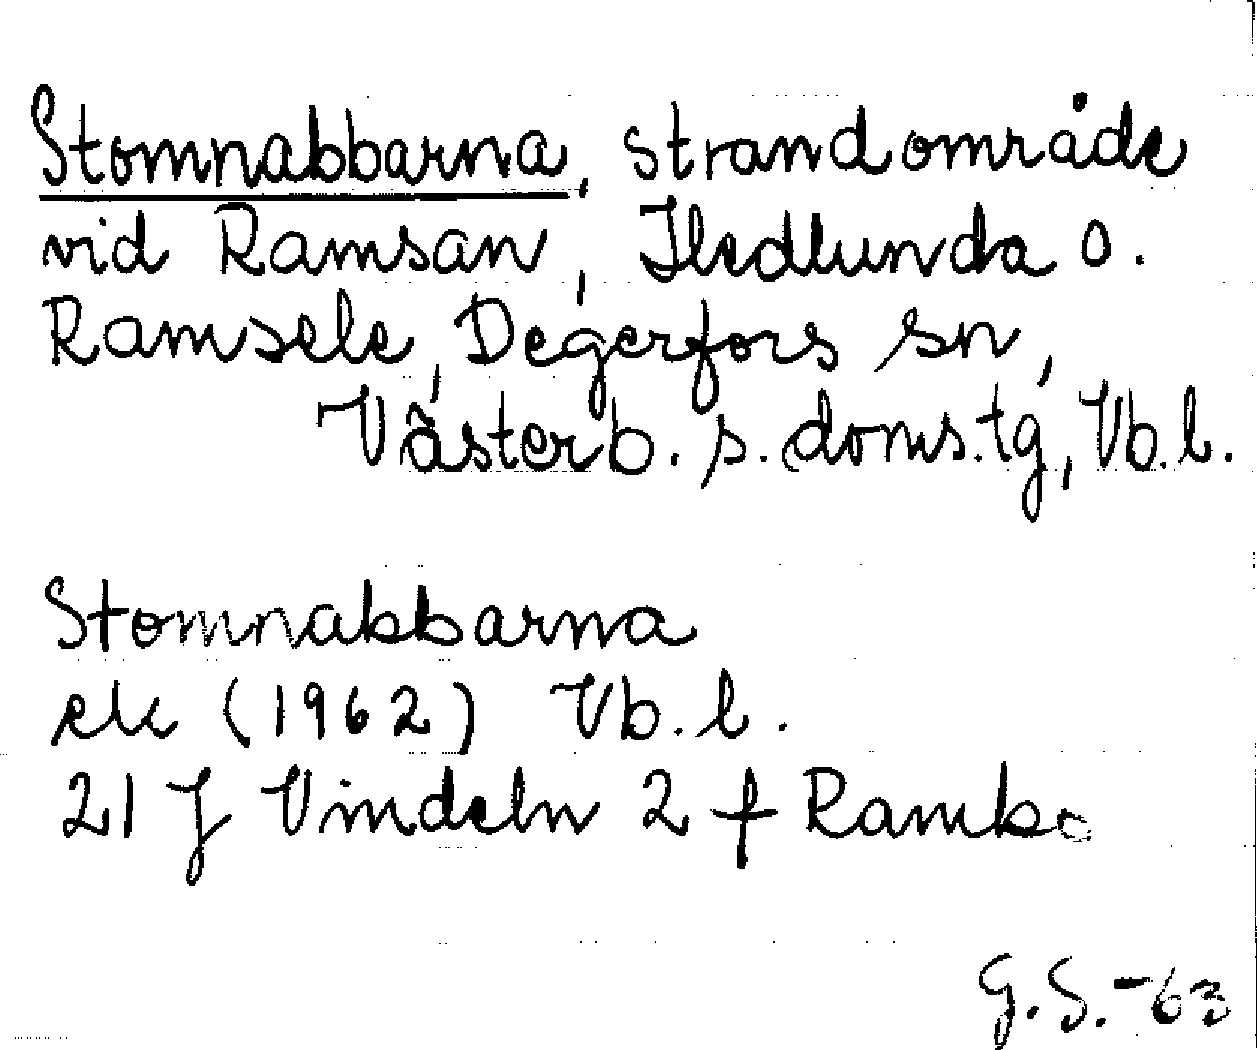 Stomnabbarna, strandområde
vid Ramsan, Hedlunda o.
Ramsele, Degerfors sn,
Västerb. s. doms.tg, Vb.l.
Stomnabbarna
ek (1962) Vb. l.
21 J Vindeln 2 f Rambo
G.S.-63